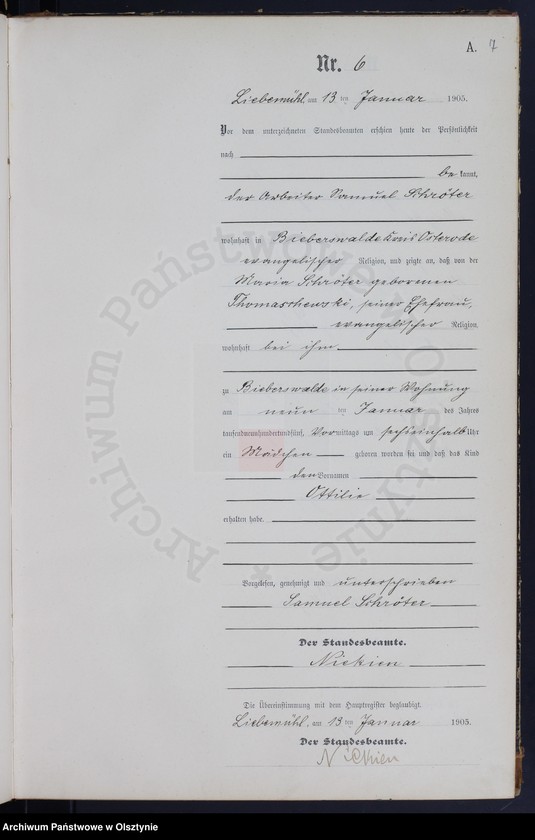 A. 7
Nr. 6
Liebemühl, am 13 ten Januar 1905.
Vor dem unterzeichneten Standesbeamten erschien heute der Persönlichkeit
nach
be kannt,
der Arbeiter Samuel Schröter
wohnhaft in Bieberswalde Kreis Osterode
evangelischer Religion, und zeigte an, daß von der
Maria Schröter geborenen
Thomaschewski, seiner Ehefrau,
evangelischer Religion,
wohnhaft bei ihm
zu Bieberswalde in seiner Wohnung
am neun ten Januar des Jahres
tausendneunhundertundfünf, Vormittags um sechseinhalb Uhr
ein Mädchen geboren worden sei und daß das Kind
den Vornamen
Ottilie
erhalten habe.
Vorgelesen, genehmigt und unterschrieben
Samuel Schröter
Der Standesbeamte.
Nickien
Die Übereinstimmung mit dem Hauptregister beglaubigt.
Liebemühl, am 13 ten Januar 1905.
Der Standesbeamte.
Nickien
Archiwum Państwowe w Olsztynie
Archiwum Państwowe w Olsztynie